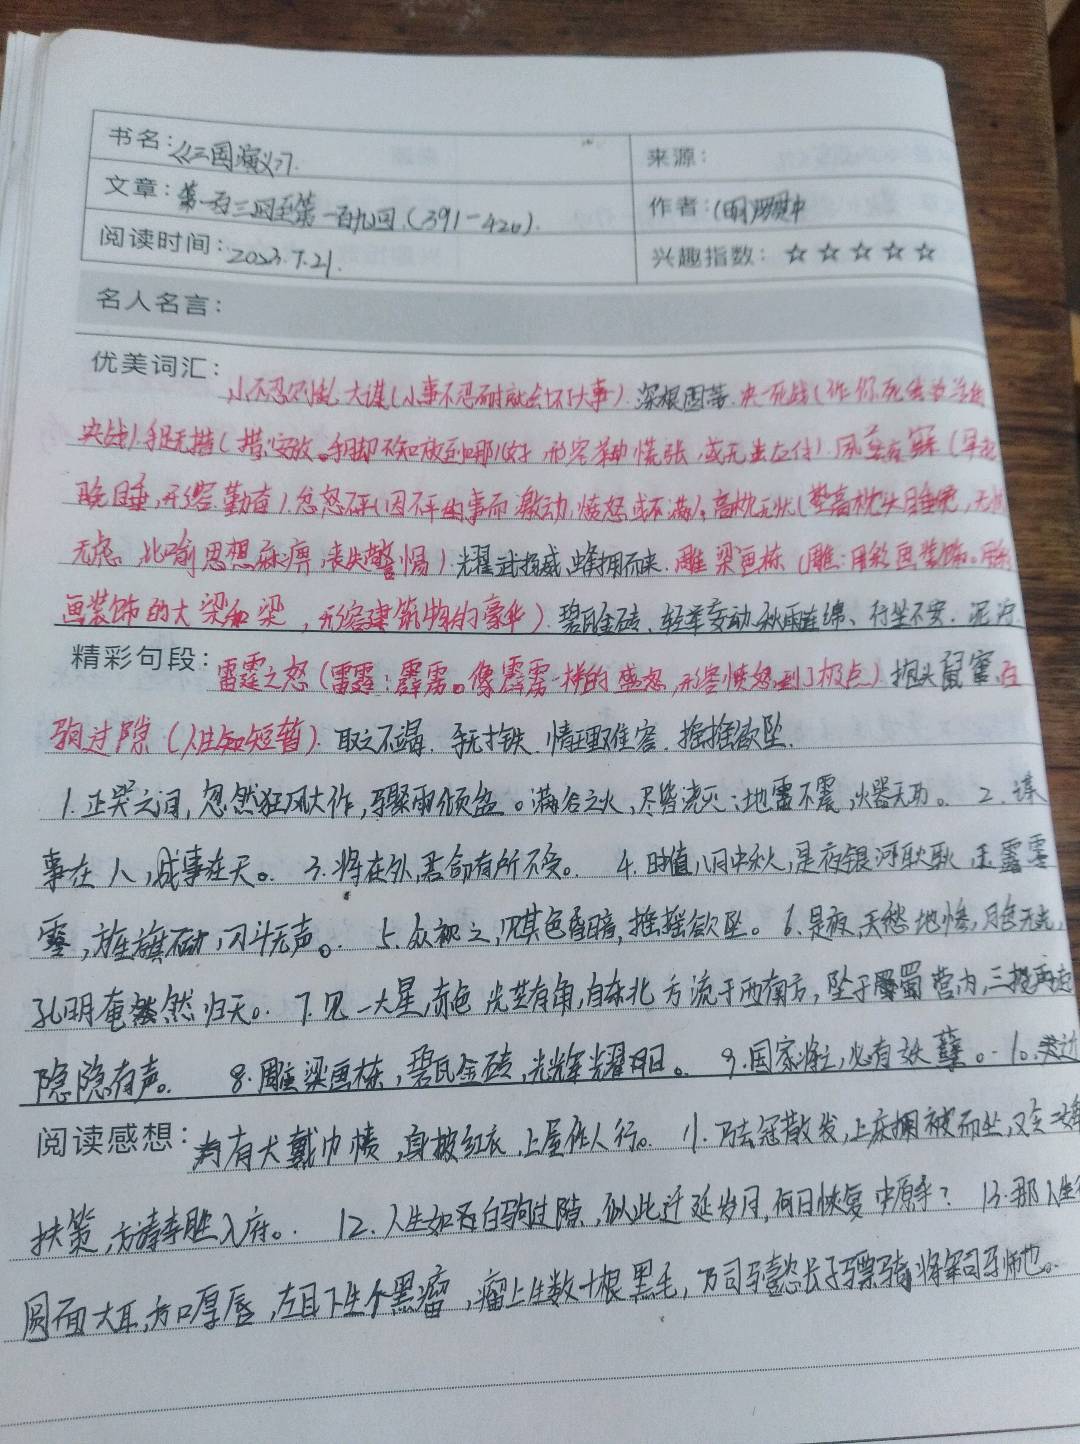 书名：《三国演义》
来源：
文章：第一百三回至第一百九回.(391-420).
作者：(明)罗贯中
阅读时间：2023.7.21.
兴趣指数：☆☆☆☆☆
名人名言：
优美词汇：
小不忍则乱大谋(小事不忍耐就会坏大事).深根固蒂.决一死战(作你死我活的
决战)手足无措(措:安放。手脚不知放到哪儿好,形容举动慌张,或无法应付).夙兴夜寐(早起
晚睡,形容勤奋).忿怒不平(因不平的事而激动,愤怒或不满).高枕无忧(垫高枕头睡觉,无忧
无虑,比喻思想麻痹,丧失警惕).耀武扬威.蜂拥而来.雕梁画栋(雕:用彩画装饰。用彩
画装饰的大梁和梁,形容建筑物的豪华).碧瓦金砖.轻举妄动.秋雨连绵、行坐不安.泥泞.
精彩句段：
雷霆之怒(雷霆:霹雳。像霹雳一样的盛怒,形容愤怒到了极点)抱头鼠窜.白
驹过隙(人生如短暂).取之不竭.手无寸铁.情理难容.摇摇欲坠.
1.正哭之间,忽然狂风大作,骤雨倾盆。满谷之火,尽皆浇灭:地雷不震,火器无功。 2.谋
事在人,成事在天。 3.将在外,君命有所不受。 4.时值八月中秋,是夜银河耿耿,玉露零
零,旌旗不动,刁斗无声。 5.众视之,见其色昏暗,摇摇欲坠。 6.是夜,天愁地惨,月色无光,
孔明奄然归天。 7.见一大星,赤色,光芒有角,自东北方流于西南方,坠于蜀营内,三投再起
隐隐有声。 8.雕梁画栋,碧瓦金砖,光辉耀日。 9.国家将亡,必有妖孽。 10.
阅读感想：
有犬戴巾帻,身披红衣,上屋作人行。 11.乃去冠散发,上床拥被而坐,又令二婢
扶策,方请李胜入府。 12.人生如白驹过隙,似此迁延岁月,何日恢复中原乎? 13.那人生得
圆面大耳,方口厚唇,左目下生个黑瘤,瘤上生数十根黑毛,乃司马懿长子骠骑将军司马师也。